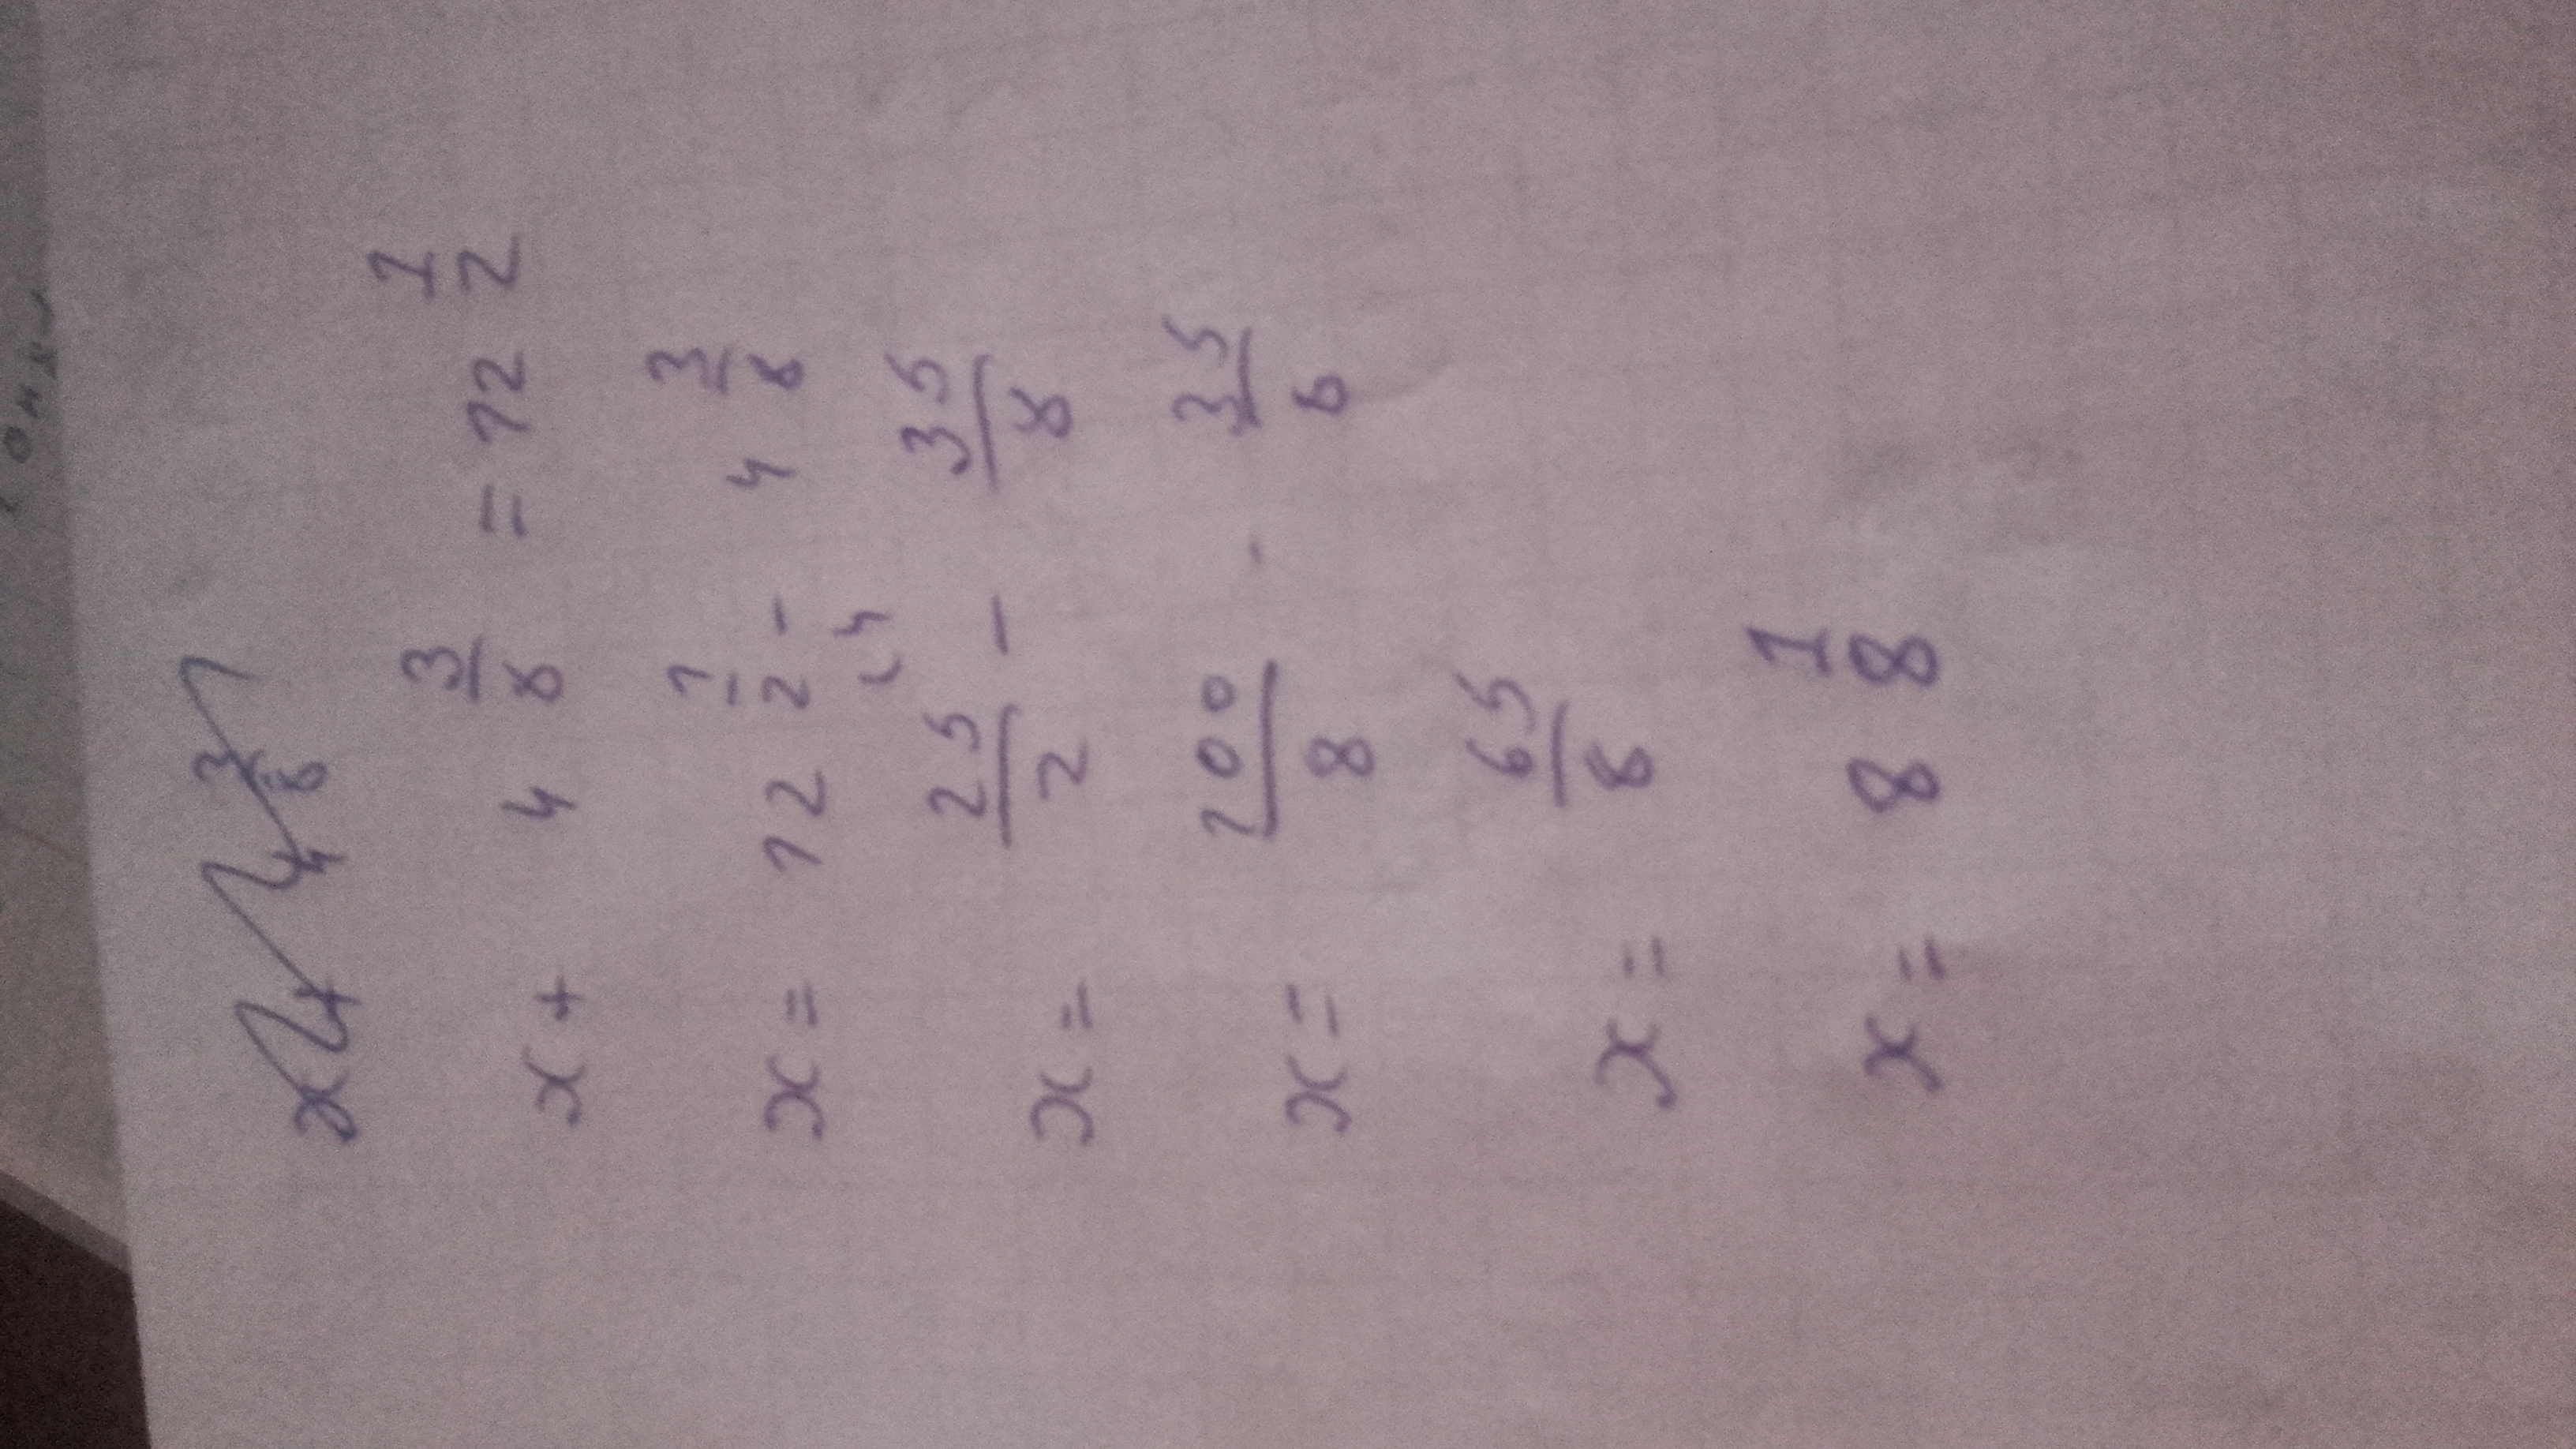 x + 4 3/8 = 12 1/2
x = 12 1/2 - 4 3/8
(4
x = 25/2 - 35/8
x = 100/8 - 35/8
x = 65/8
x = 8 1/8